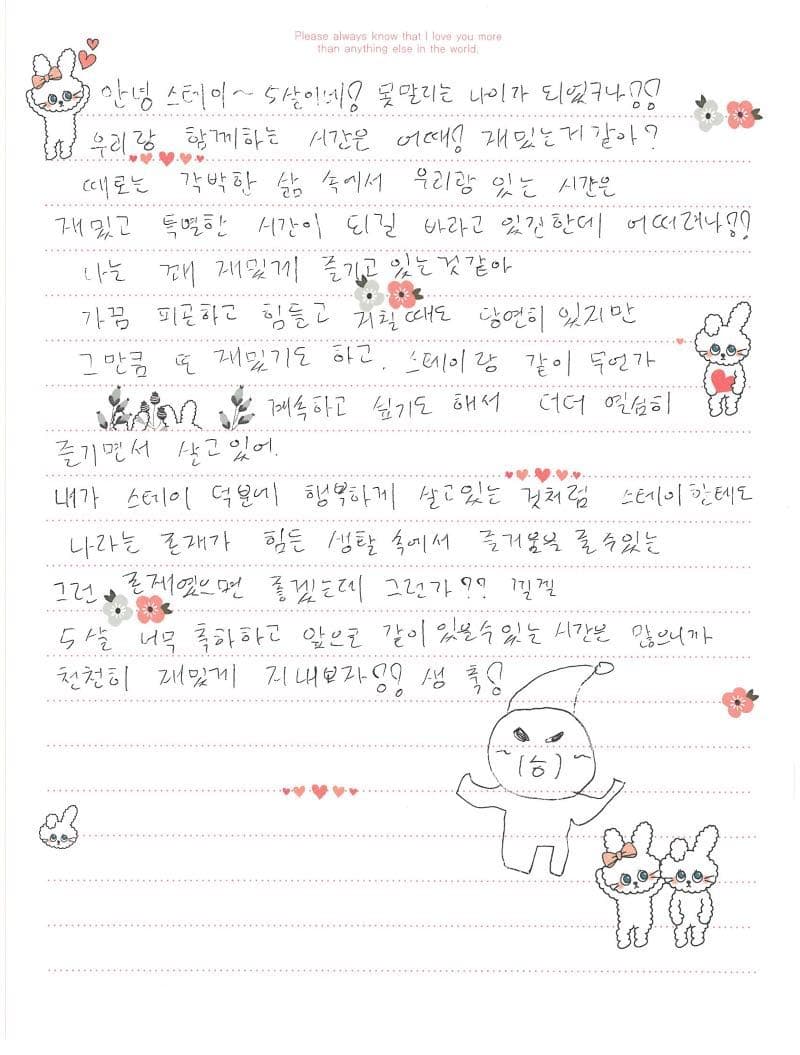 Please always know that I love you more
than anything else in the world.
안녕 스테이~ 5살이네! 못말리는 나이가 되었구나!!
우리랑 함께하는 시간은 어때? 재밌는거 같아?
때로는 각박한 삶 속에서 우리랑 있는 시간은
재밌고 특별한 시간이 되길 바라고 있긴한데 어떠려나??
나는 꽤 재밌게 즐기고 있는것 같아
가끔 피곤하고 힘들고 지칠때도 당연히 있지만
그만큼 또 재밌기도 하고. 스테이랑 같이 무언가
계속하고 싶기도 해서 더더 열심히
즐기면서 살고있어.
내가 스테이 덕분에 행복하게 살고있는 것처럼 스테이한테도
나라는 존재가 힘든 생활 속에서 즐거움을 줄 수 있는
그런 존재였으면 좋겠는데 그런가?? 낄낄
5살 너무 축하하고 앞으로 같이 있을수있는 시간은 많으니까
천천히 재밌게 지내보자!! 생 축!
~(승)~